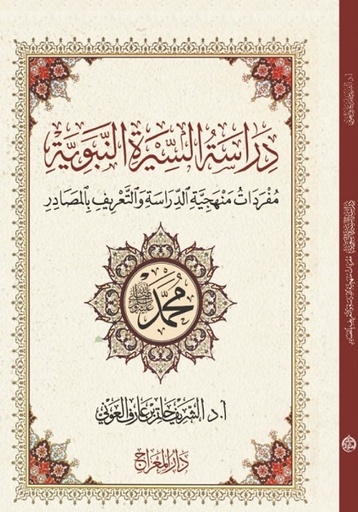 دِرَاسَةُ السِّيْرَةِ النَّبَوِيَّةِ
مُفْرَدَاتُ مَنْهَجِيَّةِ الدِّرَاسَةِ وَالتَّعْرِيفِ بِالمَصَادِرِ
مُحَمَّد
أ.د. الشريف حاتم بن عارف العوني
دَارُ المِعْرَاج